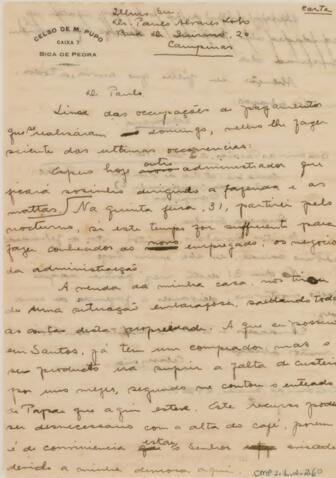 CELSO DE M. PUPO
CAIXA 7
BICA DE PEDRA
carta
Illmo. Snr.
Dr. Paulo Alvares Lobo
Rua Dr. Quirino, 20
Campinas
Dr. Paulo.
Livre das occupações de pagamentos
que se realisaram domingo, venho lhe fazer
sciente das ultimas occorrencias:
hoje outro administrador que
ficará sosinho dirigindo a fazenda e as
mattas. Na quinta feira, 31, partirei pelo
nocturno, si este tempo fôr sufficiente para
fazer conhecidos ao empregado, os negocios
da administração.
A venda da minha casa, nos tirou
de uma situação embaraçosa, saldando todas
as contas desta propriedade. A que se possue
em Santos, já tem um comprador, mas o
seu producto irá suprir a falta de custeio
por uns mezes, segundo me contou o enteado
de Papae que aqui esteve. Este recurso póde
ser desnecessario com a alta do café, porem
é de conveniencia estar o Senhor avisado
devido a minha demora aqui.
CMP 2.1.4.260